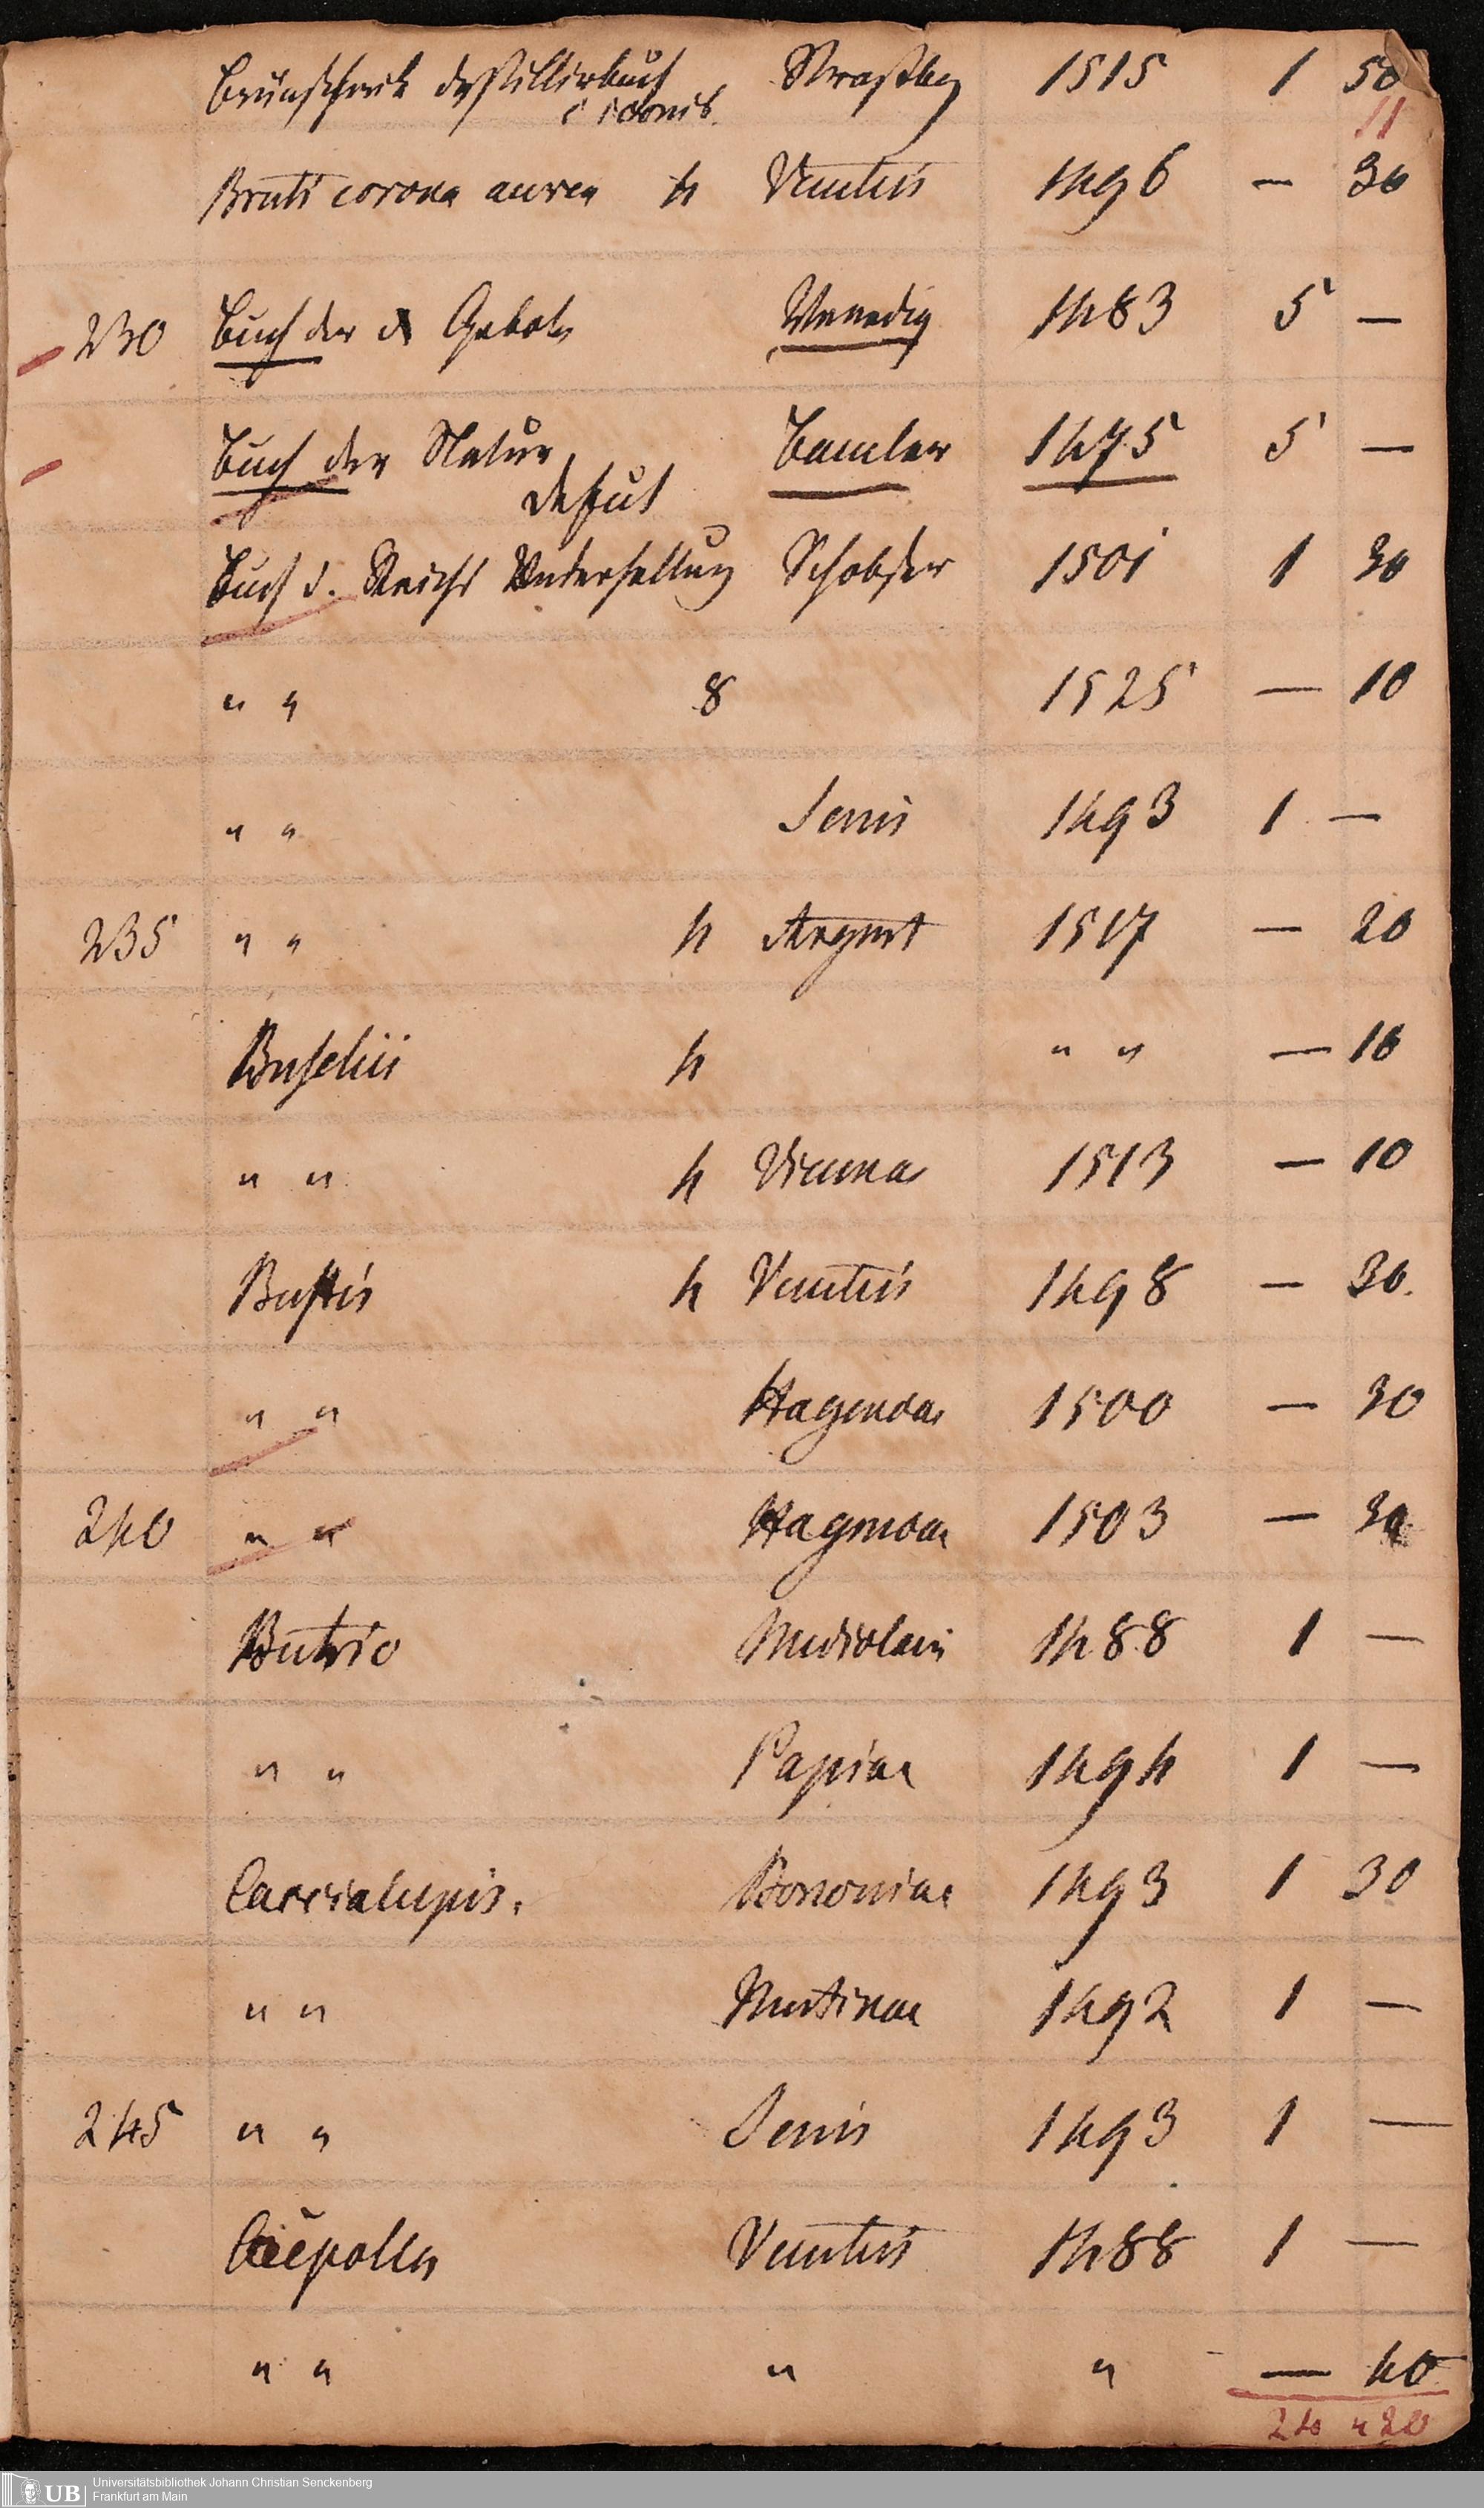 Brünschwik destillirbuch Straßbg 1515 1 50
11
Bruti corona aurea 4 Venetiis 1496 — 30
230 Buch der Gebote Venedig 1483 5 —
Buch der Natur Baemler 1475 5 —
defect
Buch d. Reichs Underhaltung Schobser 1501 1 30
" " 8 1525 — 10
" " Senis 1493 1 —
235 " " 4 Argent 1517 — 20
Buschii 4 " " — 10
" " 4 Viennae 1513 — 10
Bustis 4 Venetiis 1498 — 30.
" " Hagenoae 1500 — 30
240 " " Hagenoae 1503 — 30
Butrio Mediolani 1488 1 —
" " Papiae 1494 1 —
Caccialupis. Bononiae 1493 1 30
" " Mutinae 1492 1 —
245 " " Senis 1493 1 —
Caepolla Venetiis 1488 1 —
" " " " — 40
UB Universitätsbibliothek Johann Christian Senckenberg
Frankfurt am Main